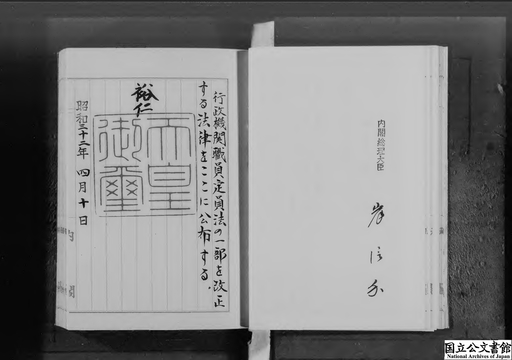 内閣総理大臣
岸信介
行政機関職員定員法の一部を改正
する法律をここに公布する。
裕仁
天皇
御璽
昭和三十三年 四月十日
国立公文書館
National Archives of Japan